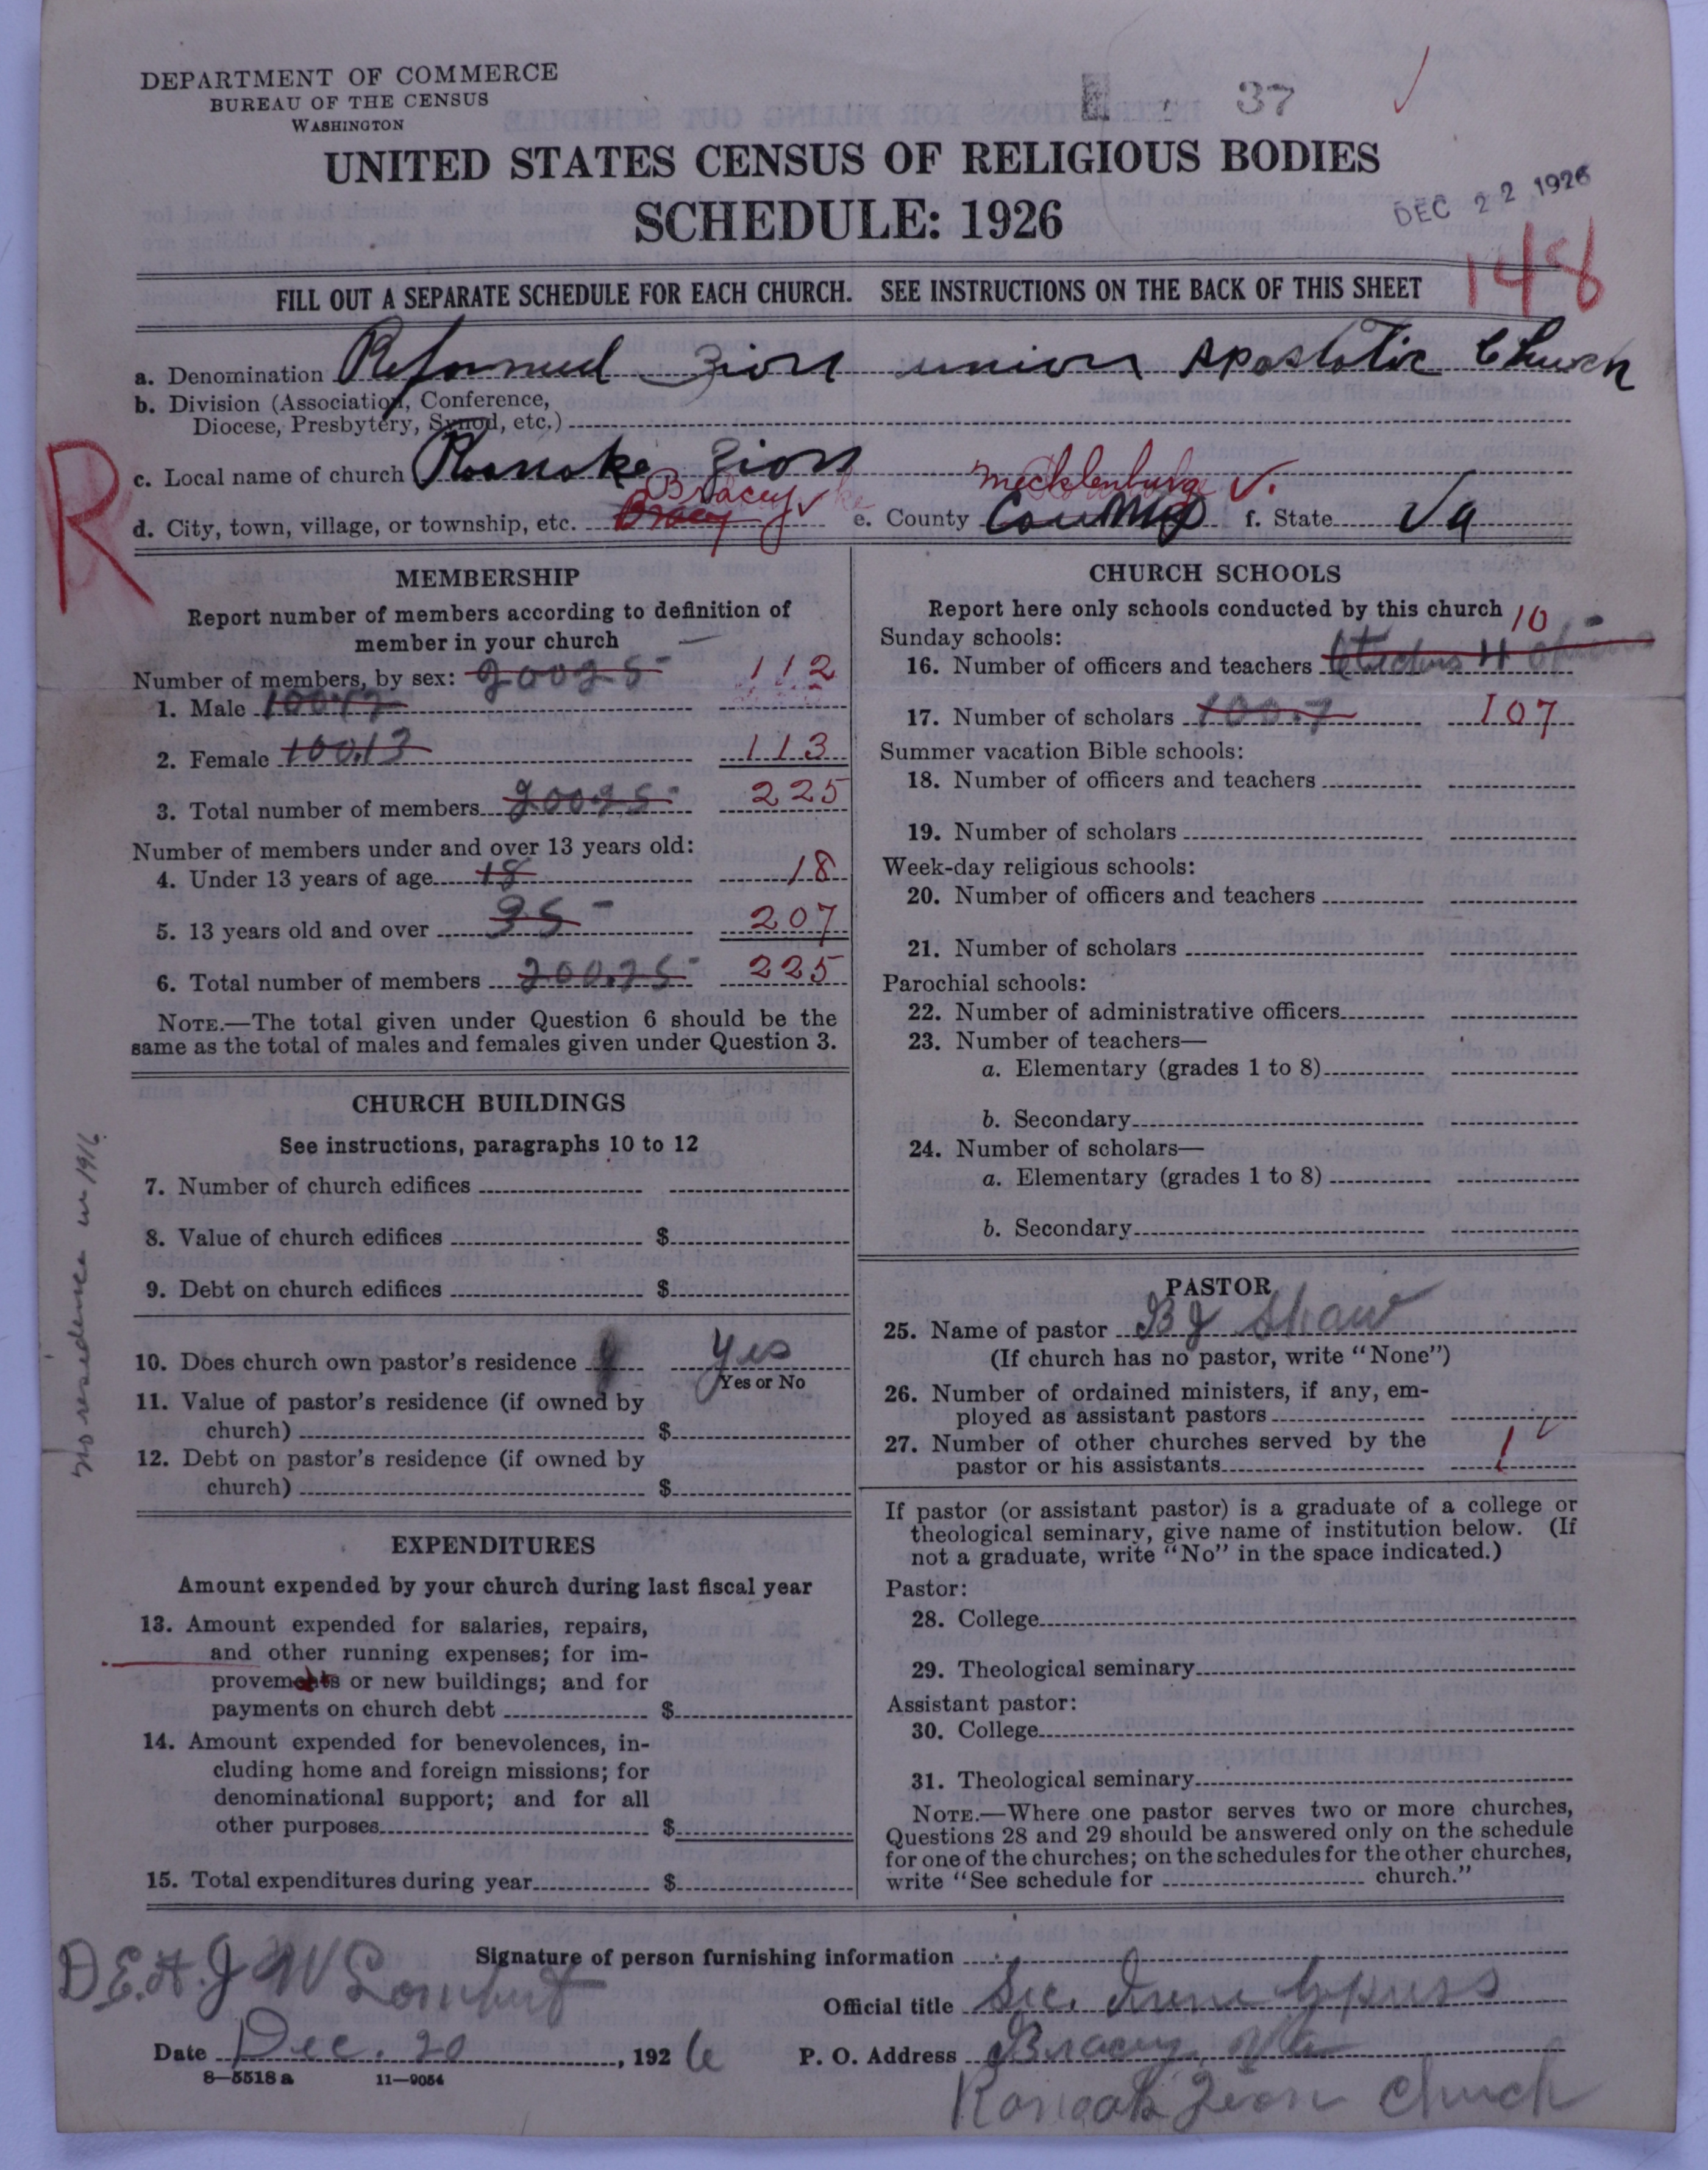 DEPARTMENT OF COMMERCE
BUREAU OF THE CENSUS
WASHINGTON
37
UNITED STATES CENSUS OF RELIGIOUS BODIES
SCHEDULE: 1926
DEC 22 1926
148
FILL OUT A SEPARATE SCHEDULE FOR EACH CHURCH. SEE INSTRUCTIONS ON THE BACK OF THIS SHEET
a. Denomination Reformed Zion union Apostolic Church
b. Division (Association, Conference,
Diocese, Presbytery, Synod, etc.)
R
c. Local name of church Roanoke Zion
Bracey Mecklenburg
d. City, town, village, or township, etc. Bracey e. County County f. State Va
MEMBERSHIP
Report number of members according to definition of
member in your church
Number of members, by sex: 20025 112
1. Male
2. Female 10013 113
3. Total number of members 20025 225
Number of members under and over 13 years old:
4. Under 13 years of age 18 18
5. 13 years old and over 95 207
6. Total number of members 20025 225
NOTE.—The total given under Question 6 should be the
same as the total of males and females given under Question 3.
CHURCH BUILDINGS
See instructions, paragraphs 10 to 12
7. Number of church edifices
8. Value of church edifices $
9. Debt on church edifices $
No residence in 1916
10. Does church own pastor's residence Yes
Yes or No
11. Value of pastor's residence (if owned by
church) $
12. Debt on pastor's residence (if owned by
church) $
EXPENDITURES
Amount expended by your church during last fiscal year
13. Amount expended for salaries, repairs,
and other running expenses; for im-
provements or new buildings; and for
payments on church debt $
14. Amount expended for benevolences, in-
cluding home and foreign missions; for
denominational support; and for all
other purposes $
15. Total expenditures during year $
CHURCH SCHOOLS
Report here only schools conducted by this church
10
Sunday schools:
16. Number of officers and teachers 6 teachers 4 officers
17. Number of scholars 1007 107
Summer vacation Bible schools:
18. Number of officers and teachers
19. Number of scholars
Week-day religious schools:
20. Number of officers and teachers
21. Number of scholars
Parochial schools:
22. Number of administrative officers
23. Number of teachers—
a. Elementary (grades 1 to 8)
b. Secondary
24. Number of scholars—
a. Elementary (grades 1 to 8)
b. Secondary
PASTOR
25. Name of pastor B J Shaw
(If church has no pastor, write "None")
26. Number of ordained ministers, if any, em-
ployed as assistant pastors
27. Number of other churches served by the
pastor or his assistants 1
If pastor (or assistant pastor) is a graduate of a college or
theological seminary, give name of institution below. (If
not a graduate, write "No" in the space indicated.)
Pastor:
28. College
29. Theological seminary
Assistant pastor:
30. College
31. Theological seminary
NOTE.—Where one pastor serves two or more churches,
Questions 28 and 29 should be answered only on the schedule
for one of the churches; on the schedules for the other churches,
write "See schedule for church."
Signature of person furnishing information
J W
Official title Sec. Irene Cypress
Date Dec. 20, 1926 P. O. Address Bracey Va
8—5518 a 11—9054
Zion Church